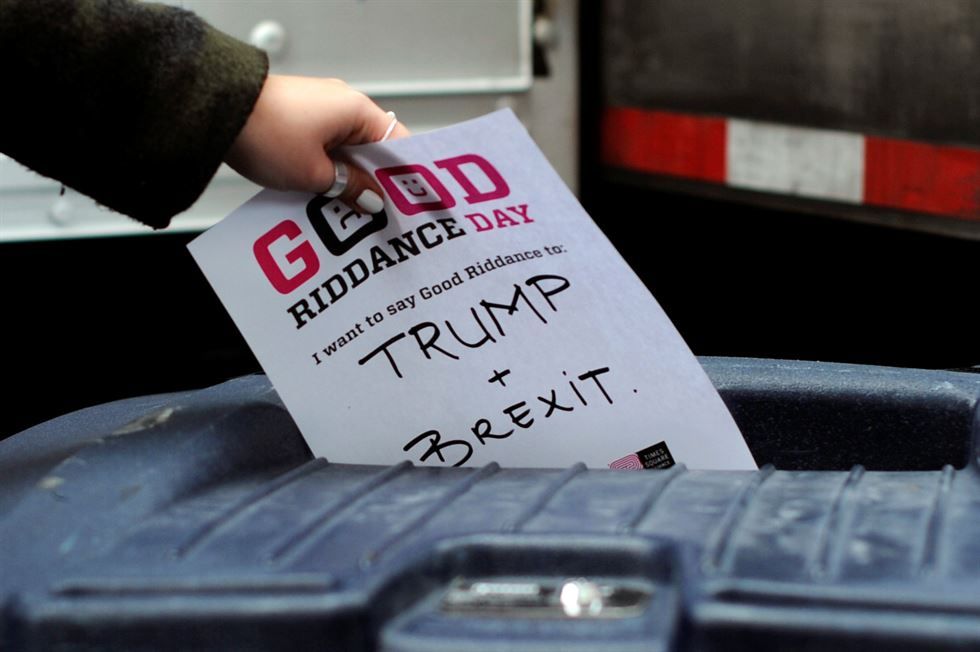 GOOD
RIDDANCE DAY
I want to say Good Riddance to:
TRUMP
+
BREXIT.
TIMES
SQUARE